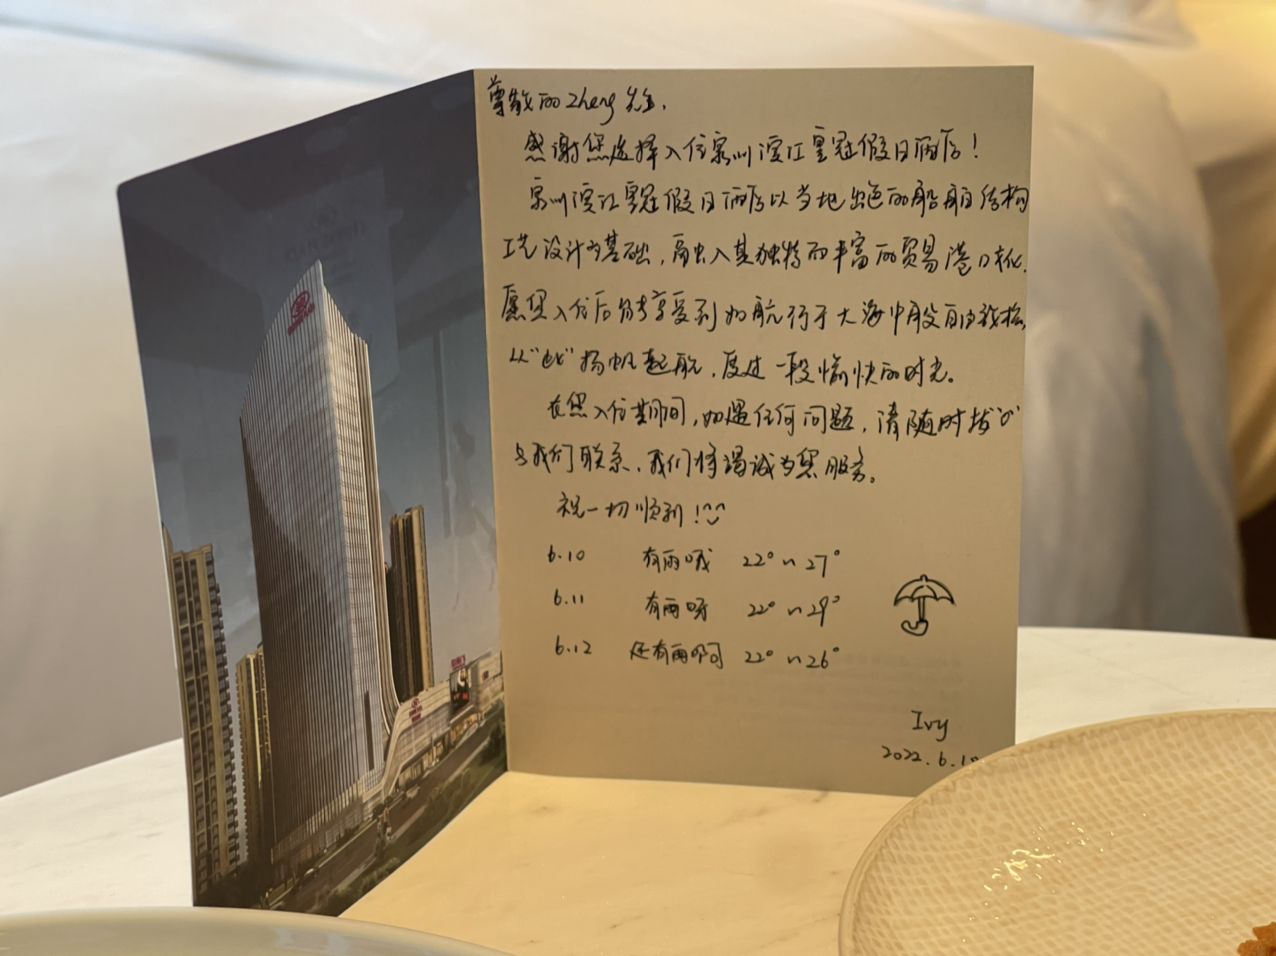 尊敬的Zheng先生,
感谢您选择入住泉州滨江皇冠假日酒店!
泉州滨江皇冠假日酒店以当地出色的船舶结构
工艺设计为基础,融入其独特而丰富的贸易港口文化.
愿您入住后能享受到如航行于大海中般自由轻松,
从“此”扬帆起航,度过一段愉快的时光。
在您入住期间,如遇任何问题,请随时拨"0"
与我们联系,我们将竭诚为您服务。
祝一切顺利!
6.10 有雨哦 22°~27°
6.11 有雨呀 22°~29°
6.12 还有雨啊 22°~26°
Ivy
2022.6.10